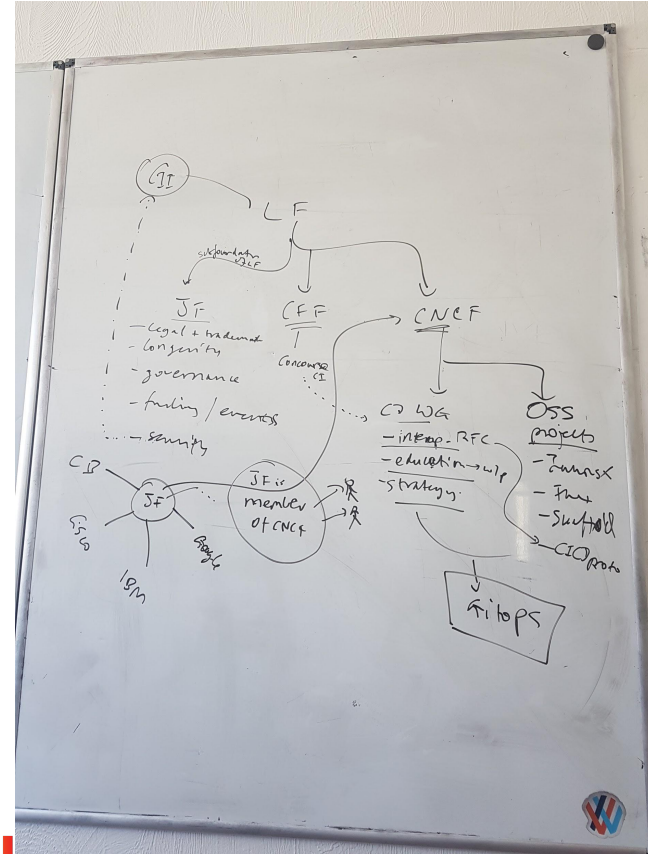 CII
LF
subfoundation
of LF
JF
- Legal + trademark
- Longevity
- governance
- funding / events
- security
CFF
Concourse
CI
CNCF
CD WG
- interop. RFC
- education → w/p
- strategy.
OSS
projects
- Flux
- CICD proto
Gitops
JF
CB
Cisco
IBM
Google
JF is
member
of CNCF